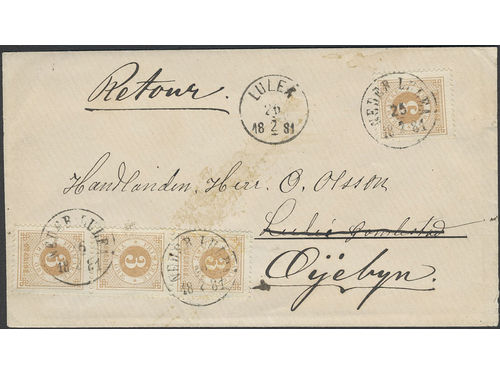 Retour.
LULEÅ
18 2 81
NEDER LULEÅ
25
18 2 81
3
Handlanden, Herr O. Olsson
Luleå Gamlestad
Öijebyn.
NEDER LULEÅ
6
18 81
3
3
NEDER LULEÅ
18 2 81
3